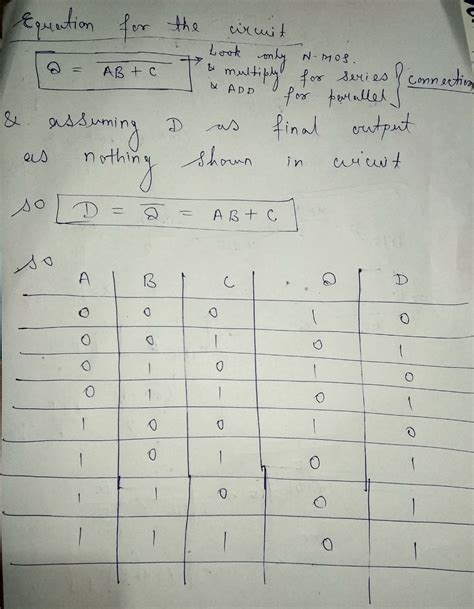 Equation for the circuit
Q = \overline{AB + C} → Look only N-MOS.
& multiply for series } connection
& ADD for parallel
& assuming D as final output
as nothing shown in circuit
so D = \overline{Q} = AB + C
so
A B C Q D
0 0 0 1 0
0 0 1 0 1
0 1 0 1 0
0 1 1 0 1
1 0 0 1 0
1 0 1 0 1
1 1 0 0 1
1 1 1 0 1